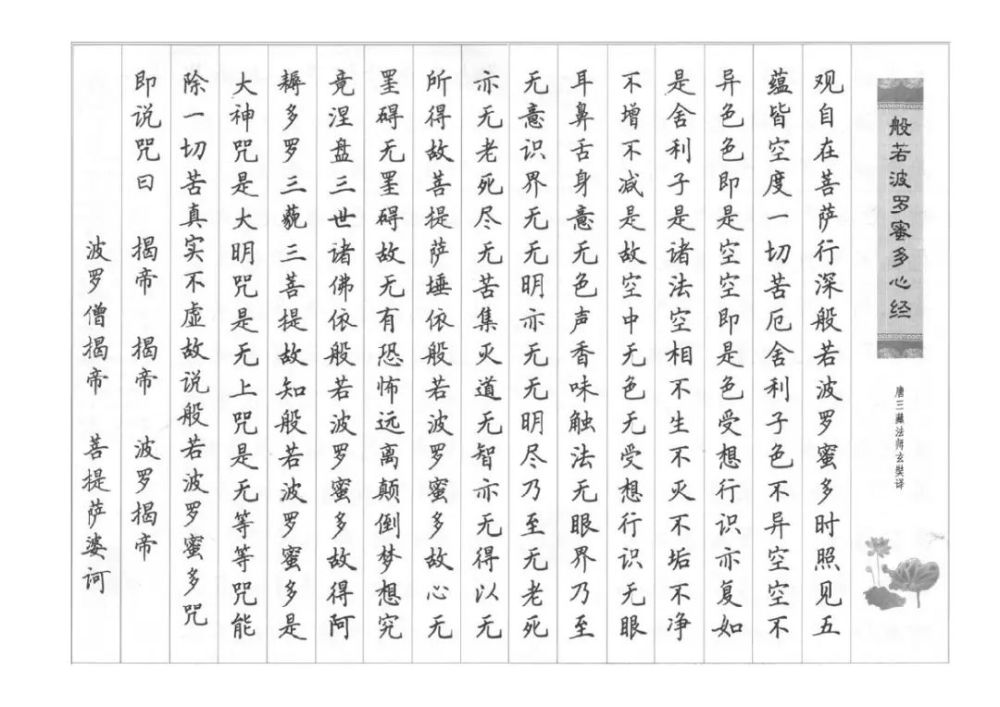 般若波罗蜜多心经
唐三藏法师玄奘译
观自在菩萨行深般若波罗蜜多时照见五
蕴皆空度一切苦厄舍利子色不异空空不
异色色即是空空即是色受想行识亦复如
是舍利子是诸法空相不生不灭不垢不净
不增不减是故空中无色无受想行识无眼
耳鼻舌身意无色声香味触法无眼界乃至
无意识界无无明亦无无明尽乃至无老死
亦无老死尽无苦集灭道无智亦无得以无
所得故菩提萨埵依般若波罗蜜多故心无
罣碍无罣碍故无有恐怖远离颠倒梦想究
竟涅盘三世诸佛依般若波罗蜜多故得阿
耨多罗三藐三菩提故知般若波罗蜜多是
大神咒是大明咒是无上咒是无等等咒能
除一切苦真实不虚故说般若波罗蜜多咒
即说咒曰 揭帝 揭帝 波罗揭帝
波罗僧揭帝 菩提萨婆诃